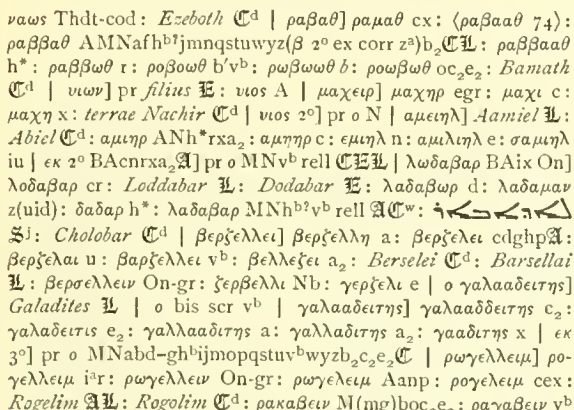 ναως Thdt-cod: Ezeboth ℭᵈ | ραβαθ] ραμαθ cx: ⟨ραβααθ 74⟩:
ραββαθ AMNafhᵇ?jmnqstuwyz(β 2° ex corr zᵃ)b₂ℭ𝕷: ραββααθ
h*: ραββωθ r: ροβοωθ b′vᵇ: ρωβωωθ b: ροωβωθ oc₂e₂: Bamath
ℭᵈ | υιων] pr filius 𝕰: υιος A | μαχειρ] μαχηρ egr: μαχι c:
μαχη x: terrae Nachir ℭᵈ | υιος 2°] pr ο N | αμειηλ] Aamiel 𝕷:
Abiel ℭᵈ: αμιηρ ANh*rxa₂: αμηηρ c: εμιηλ n: αμιλιηλ e: σαμιηλ
iu | εκ 2° BAcnrxa₂𝕬] pr ο MNvᵇ rell ℭ𝕰𝕷 | λωδαβαρ BAix On]
λοδαβαρ cr: Loddabar 𝕷: Dodabar 𝕰: λαδαβωρ d: λαδαμαν
z(uid): δαδαρ h*: λαδαβαρ MNhᵇ?vᵇ rell 𝕬ℭʷ:
𝕾ʲ: Cholobar ℭᵈ | βερζελλει] βερζελλη a: βερζελει cdghp𝕬:
βερζελαι u: βαρζελλει vᵇ: βελλεζει a₂: Berselei ℭᵈ: Barsellai
𝕷: βερσελλειν On-gr: ζερβελλι Nb: γερζελι e | ο γαλααδειτης]
Galadites 𝕷 | ο bis scr vᵇ | γαλααδειτης] γαλααδδειτης c₂:
γαλαδειτις e₂: γαλλααδιτης a: γαλλαδιτης a₂: γααδιτης x | εκ
3°] pr ο MNabd–ghᵇijmopqstuvᵇwyzb₂c₂e₂ℭ | ρωγελλειμ] ρο-
γελλειμ iᵃr: ρωγελλειν On-gr: ρωγελειμ Aanp: ρογελειμ cex:
Rogelim 𝕬𝕷: Rogolim ℭᵈ: ρακαβειν M(mg)boc₂e₂: ραγαβειν vᵇ